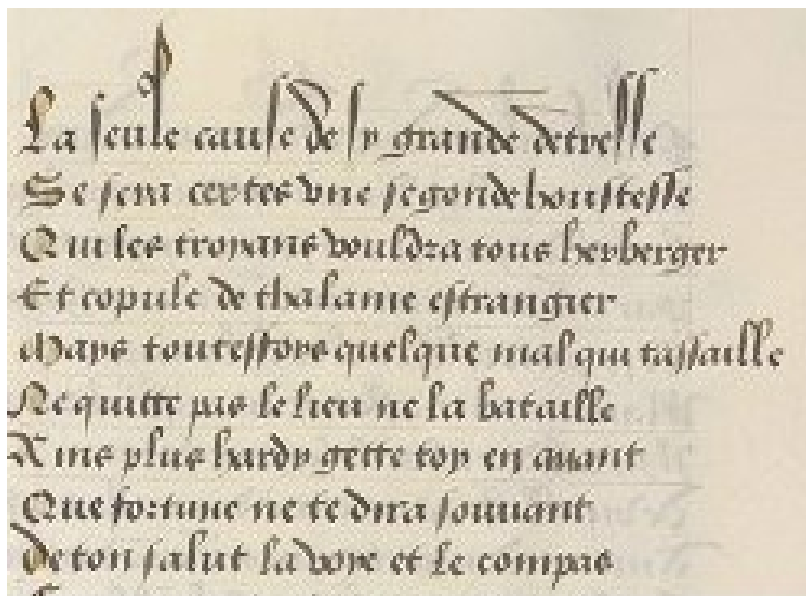 La seule cause de sy grande detresse
Se sera certes vne segonde houstesse
Qui les troyans vouldra tous herberger
Et copule de thalame estrangier
Mays toutesfoys quelque mal qui tassaille
Ne quitte pas le lieu ne la bataille
Ains plus hardy gette toy en auant
Que fortune ne te dira souuant
De ton salut la voye et le compas